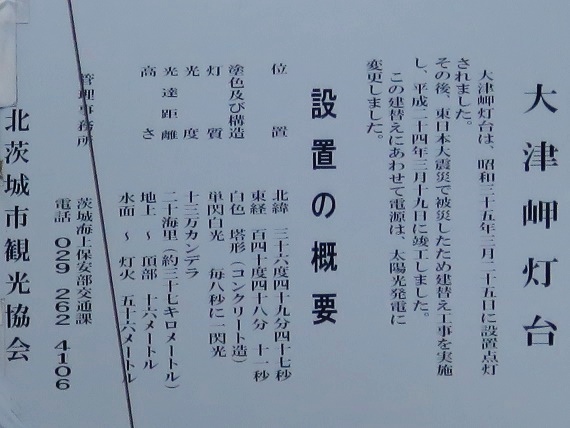 大津岬灯台
大津岬灯台は、昭和三十五年三月二十五日に設置点灯
されました。
その後、東日本大震災で被災したため建替え工事を実施
し、平成二十四年三月十九日に竣工しました。
この建替えにあわせて電源は、太陽光発電に
変更しました。
設置の概要
位置 北緯 三十六度四十九分四十七秒
東経 百四十度四十八分 十一秒
塗色及び構造 白色 塔形(コンクリート造)
灯質 単閃白光 毎八秒に一閃光
光度 十三万カンデラ
光達距離 二十海里(約三十七キロメートル)
高さ 地上 ~ 頂部 十六メートル
水面 ~ 灯火 五十六メートル
管理事務所 茨城海上保安部交通課
電話 029 262 4106
北茨城市観光協会